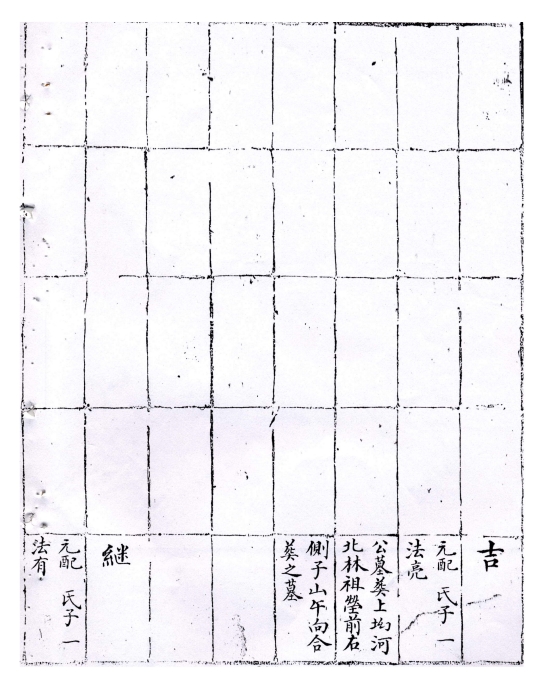 吉
元配 氏子一
法亮
公墓葬上坮河
北林祖塋前右
側子山午向合
葬之墓
継
元配 氏子一
法有